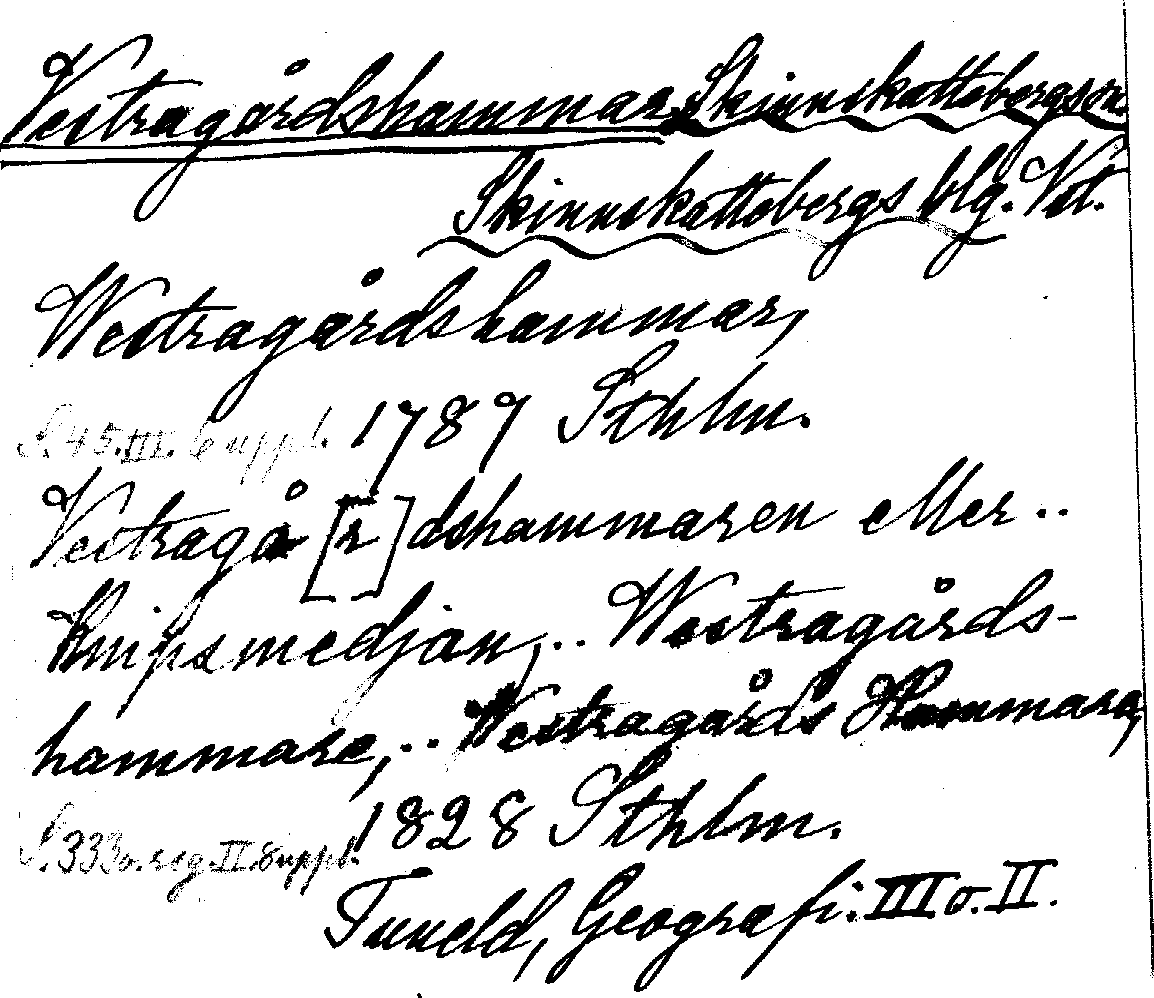 Vestragårdshammar. Skinnskattebergs sn
Skinnskattebergs blg. Vst.
Westragårdshammar,
S. 45. III. 6 uppl. 1787 Sthlm.
Vestragå [r] dshammaren eller ..
Knipsmedjan, .. Westragårds-
hammare, .. Westragårds Hammare,
S. 333 o. reg. II. 8 uppl. 1828 Sthlm.
Tuneld, Geografi. III o. II.